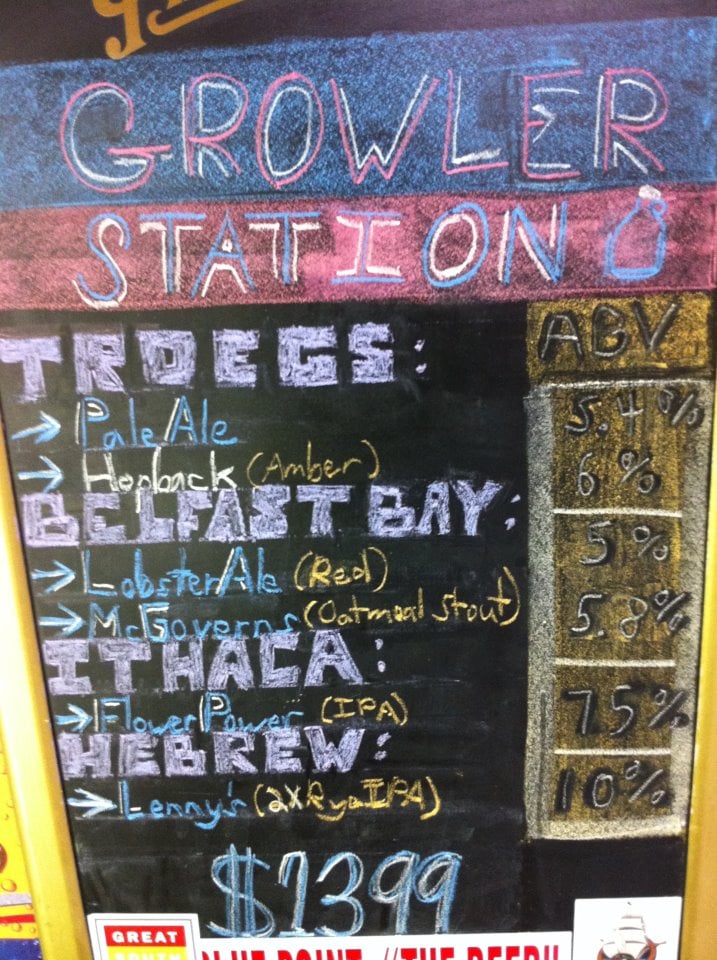 GROWLER
STATION
ABV
TROEGS:
→ Pale Ale 5.4%
→ Hopback (Amber) 6%
BELFAST BAY:
→ Lobster Ale (Red) 5%
→ McGoverns (Oatmeal Stout) 5.8%
ITHACA:
→ Flower Power (IPA) 7.5%
HEBREW:
→ Lenny's (2XRyeIPA) 10%
$1399
GREAT